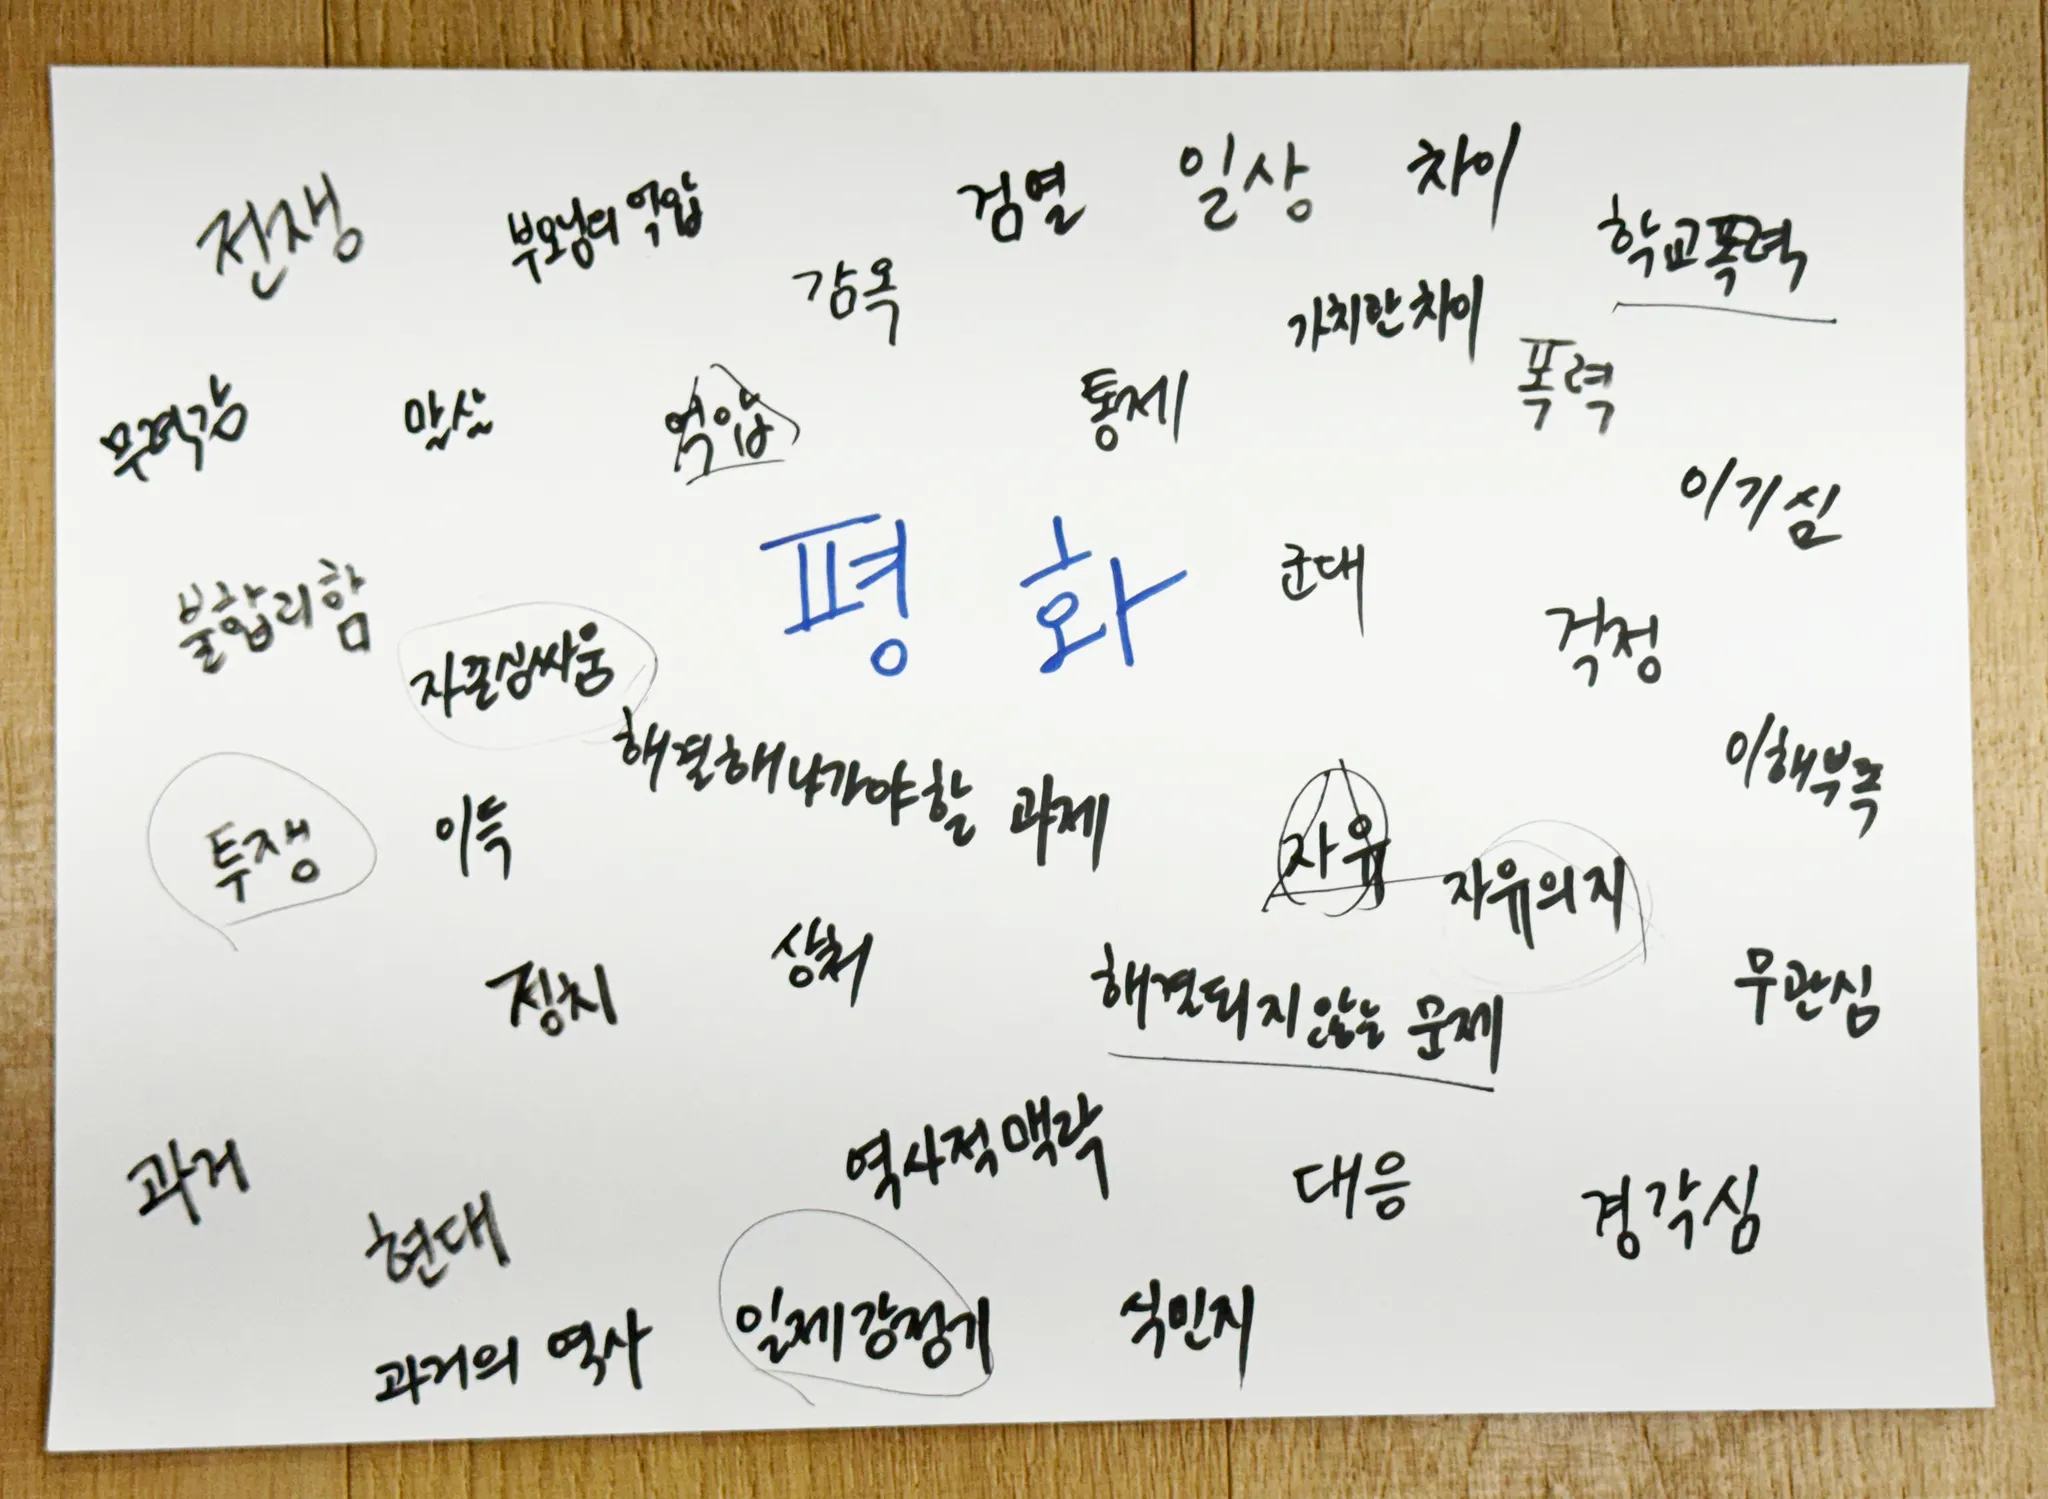 전쟁
부모님의 억압
검열
일상
차이
학교폭력
감옥
가치관 차이
폭력
무력감
말살
억압
통제
이기심
평화
군대
불합리함
자존심싸움
걱정
해결해나가야할 과제
이해부족
투쟁
이득
자유
자유의지
정치
상처
해결되지않는 문제
무관심
역사적맥락
과거
현대
대응
경각심
과거의 역사
일제강점기
식민지